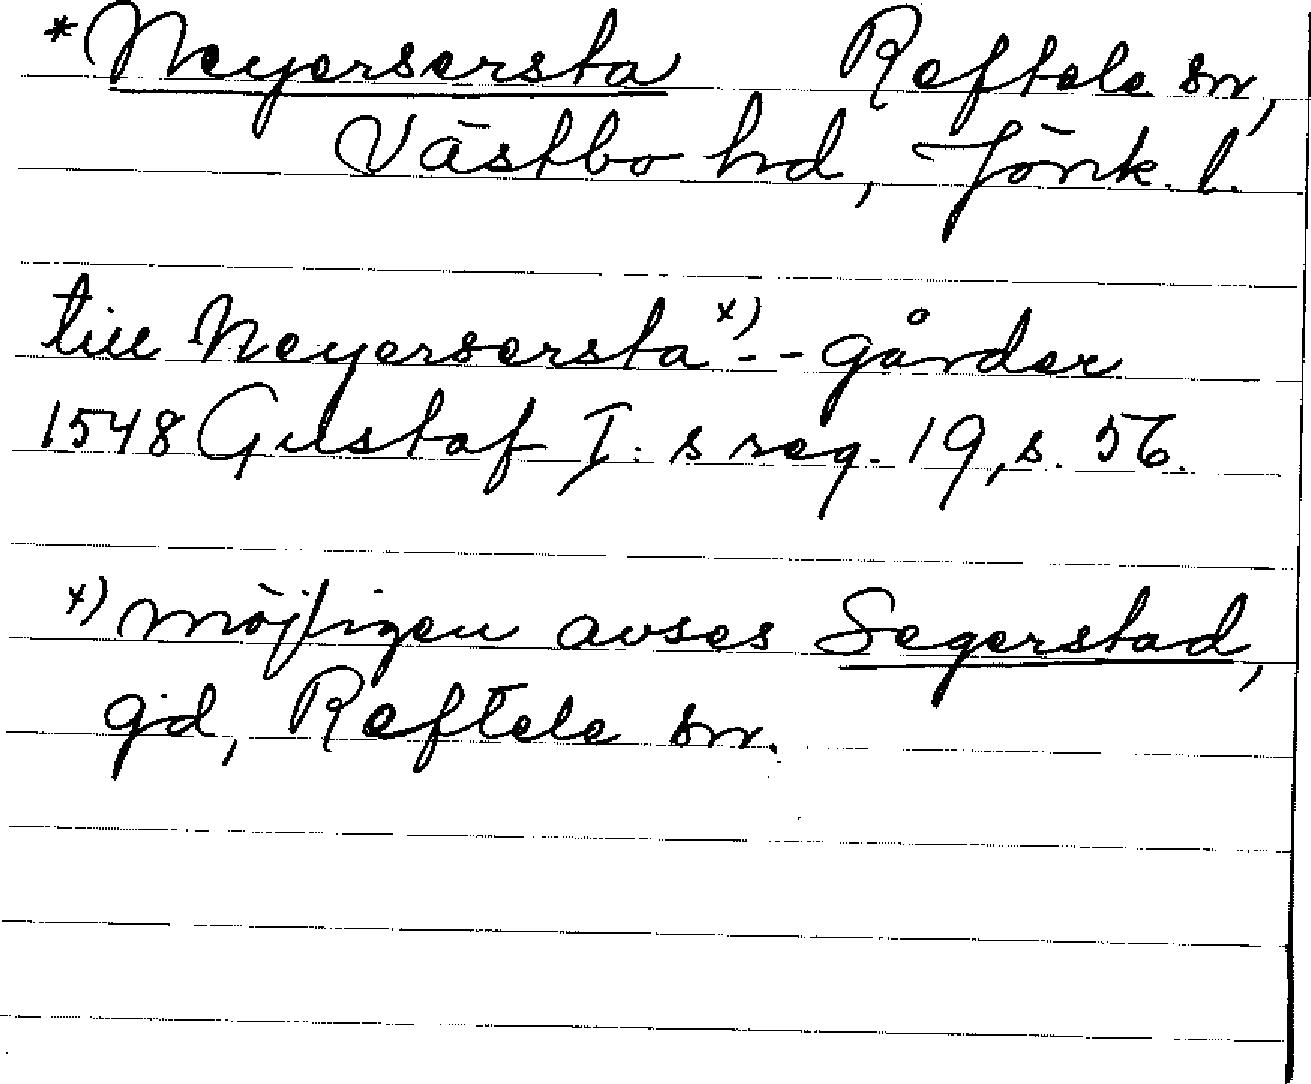 *Neyersersta Reftele sn,
Västbo hd, Jönk. l.
till Neyersersta x) -- gårder
1548 Gustaf I: s reg. 19, s. 56.
x) möjligen avses Segerstad,
gd, Reftele sn.